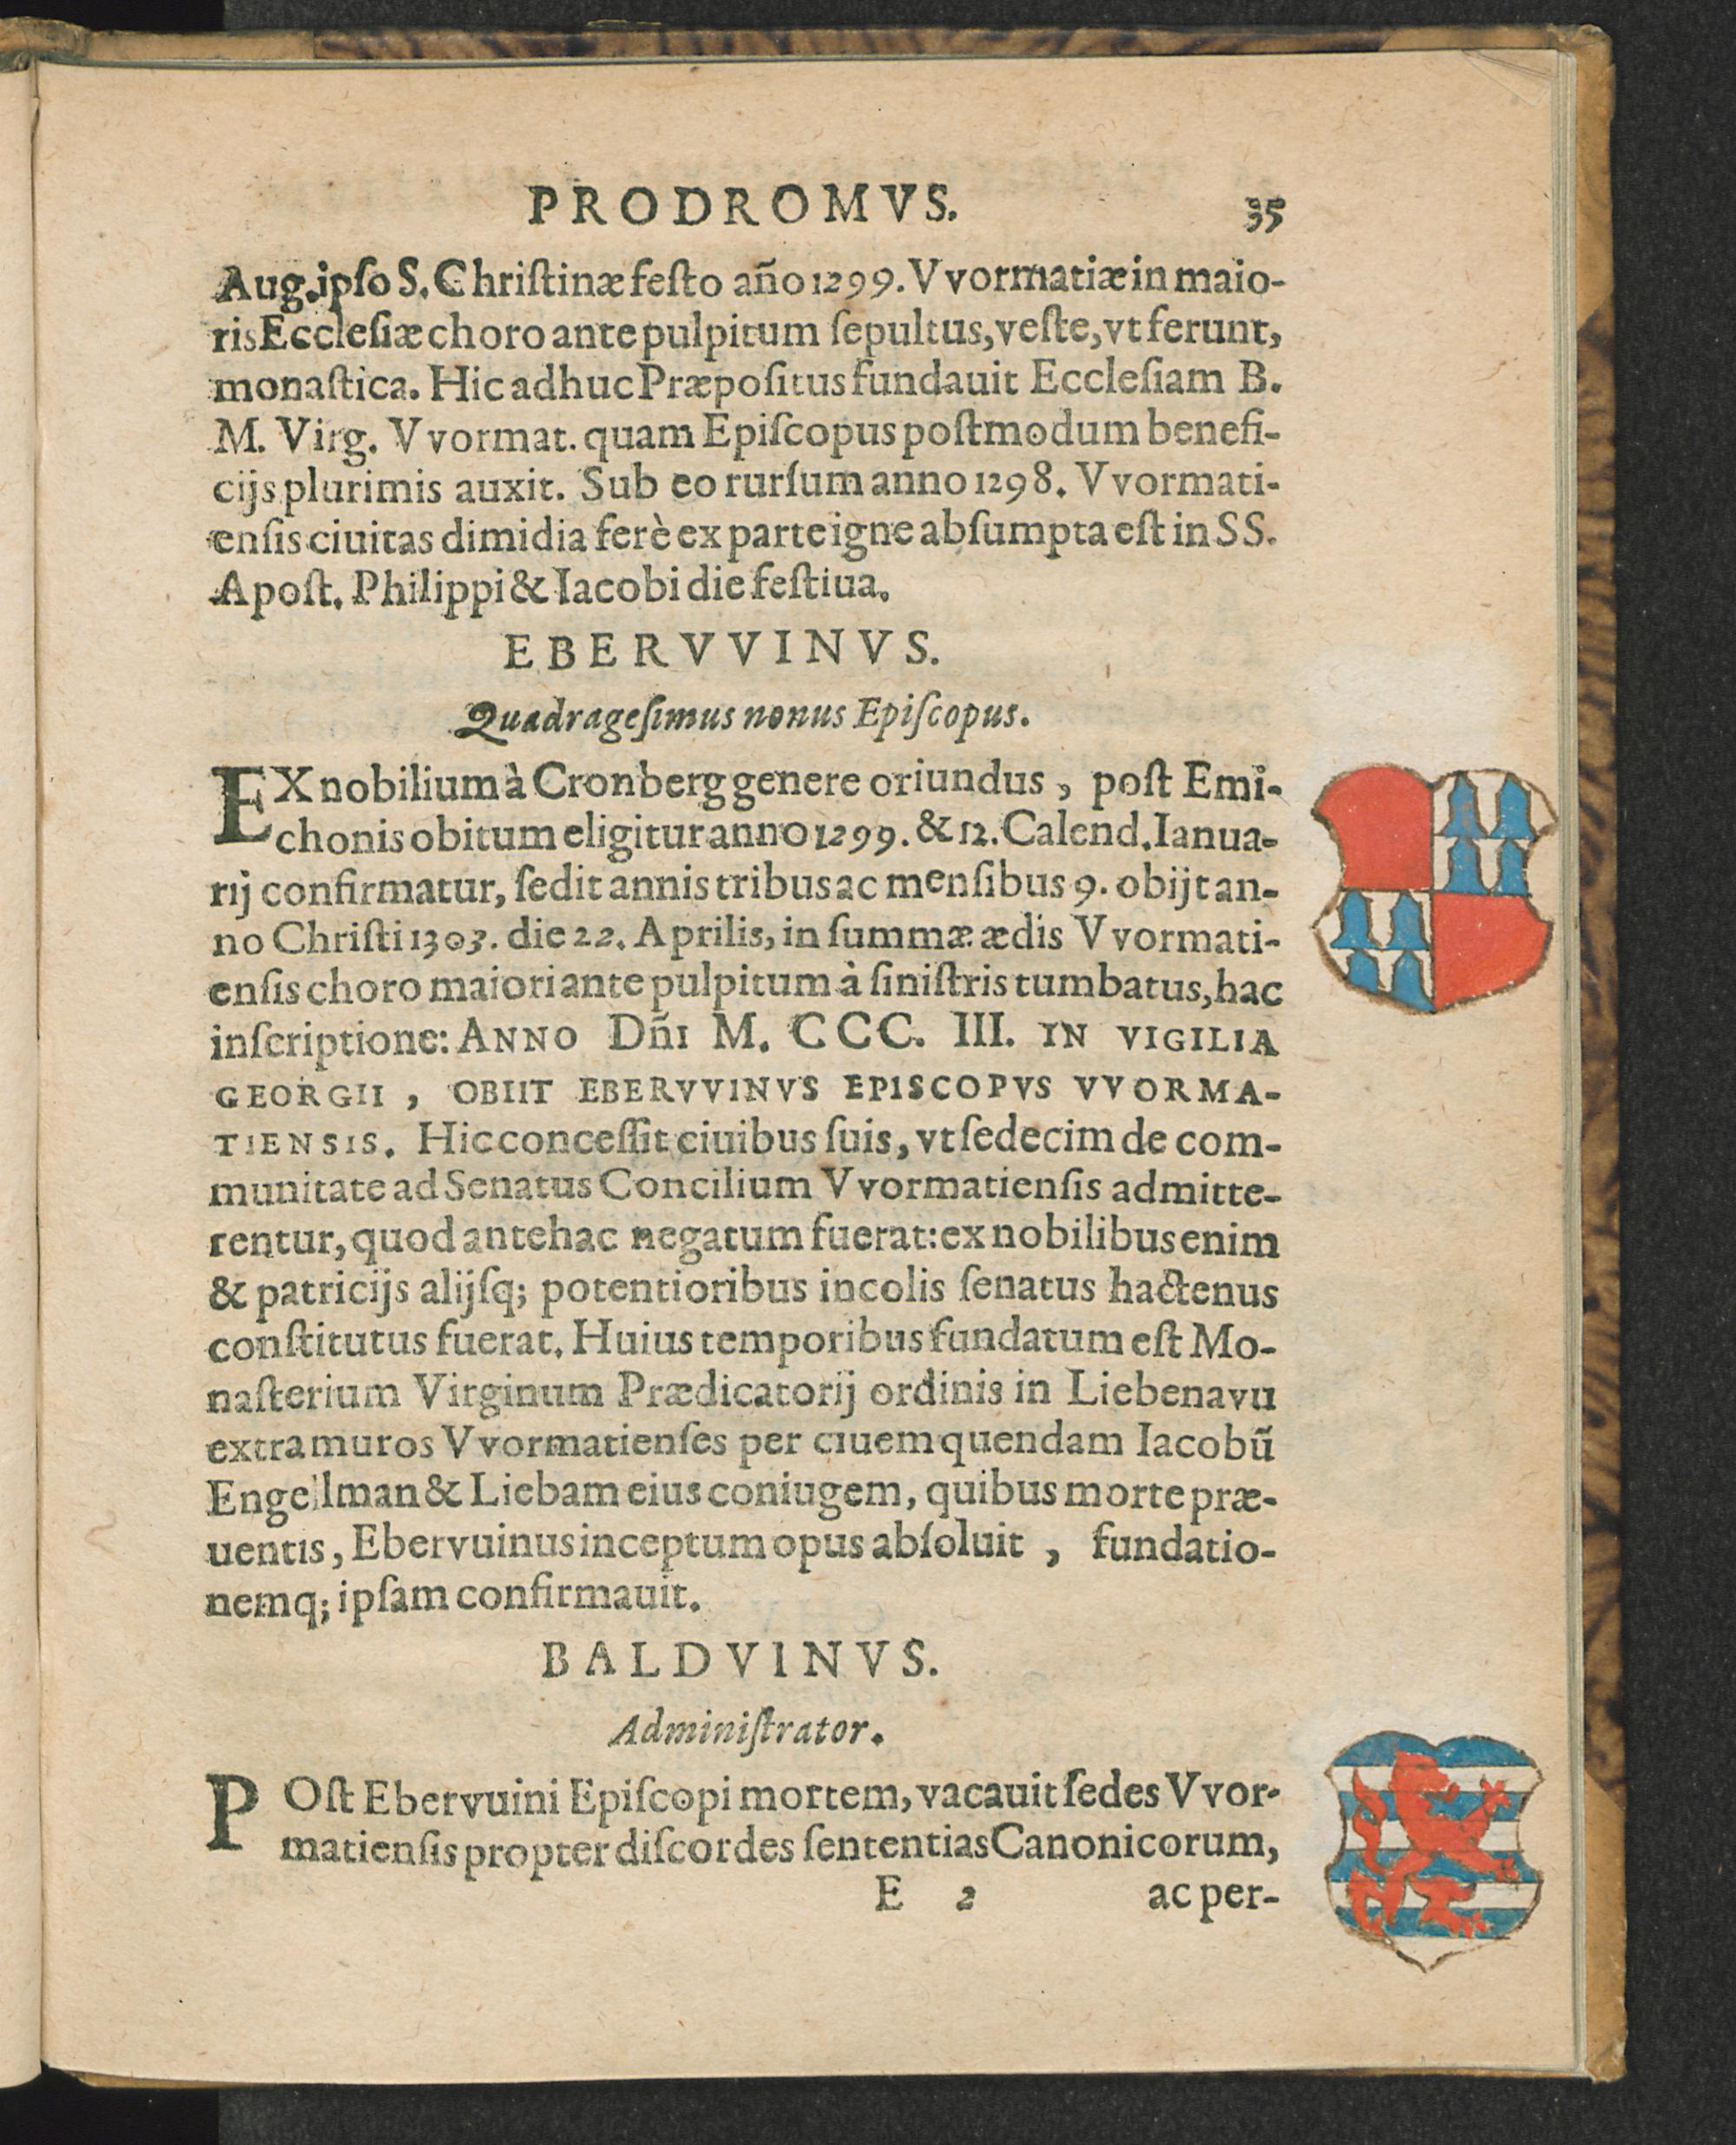 PRODROMVS. 35
Aug. ipſo S. Chriſtinæ feſto año 1299. Vvormatiæ in maio-
ris Eccleſiæ choro ante pulpitum ſepultus, veſte, vt ferunt,
monaſtica. Hic adhuc Præpoſitus fundauit Eccleſiam B.
M. Virg. Vvormat. quam Epiſcopus poſtmodum benefi-
cijs plurimis auxit. Sub eo rurſum anno 1298. Vvormati-
enſis ciuitas dimidia ferè ex parte igne abſumpta eſt in SS.
Apoſt. Philippi & Iacobi die feſtiua.
EBERVVINVS.
Quadrageſimus nonus Epiſcopus.
EX nobilium à Cronberg genere oriundus, poſt Emi-
chonis obitum eligitur anno 1299. & 12. Calend. Ianua-
rij confirmatur, ſedit annis tribus ac menſibus 9. obijt an-
no Chriſti 1303. die 22. Aprilis, in ſummæ ædis Vvormati-
enſis choro maiori ante pulpitum à ſiniſtris tumbatus, hac
inſcriptione: ANNO Dñi M. CCC. III. IN VIGILIA
GEORGII, OBIIT EBERVVINVS EPISCOPVS VVORMA-
TIENSIS. Hic conceſſit ciuibus ſuis, vt ſedecim de com-
munitate ad Senatus Concilium Vvormatienſis admitte-
rentur, quod antehac negatum fuerat: ex nobilibus enim
& patricijs alijſq; potentioribus incolis ſenatus hactenus
conſtitutus fuerat. Huius temporibus fundatum eſt Mo-
naſterium Virginum Prædicatorij ordinis in Liebenavu
extra muros Vvormatienſes per ciuem quendam Iacobũ
Engellman & Liebam eius coniugem, quibus morte præ-
uentis, Ebervuinus inceptum opus abſoluit, fundatio-
nemq; ipſam confirmauit.
BALDVINVS.
Adminiſtrator.
POſt Ebervuini Epiſcopi mortem, vacauit ſedes Vvor-
matienſis propter diſcordes ſententias Canonicorum,
E 2 ac per-